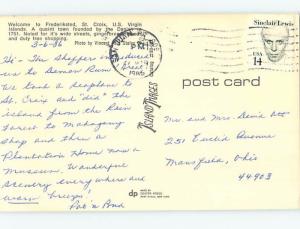 Welcome to Frederiksted, St. Croix, U.S. Virgin
Islands. A quaint town founded by the Danes in
1751. Noted for it's wide streets, gingerbread
and duty free shopping.
Photo by Vincent
3-6-86
Sinclair Lewis
USA
14
1986
post card
Hi - The Sheffers introduced
us to Demon Rum
took a seaplane to
St. Croix and "did" the
island from the Rain
Forest to Mahogany
shop and thru a
Plantation Home now a
Museum. Wonderful
scenery everywhere and
warm breezes!
Pat 'n Bud
ISLAND IMAGES
Mr. and Mrs.
251 Euclid Avenue
Mansfield, Ohio
44903
dp
MADE BY
DEXTER PRESS
WEST NYACK, NEW YORK